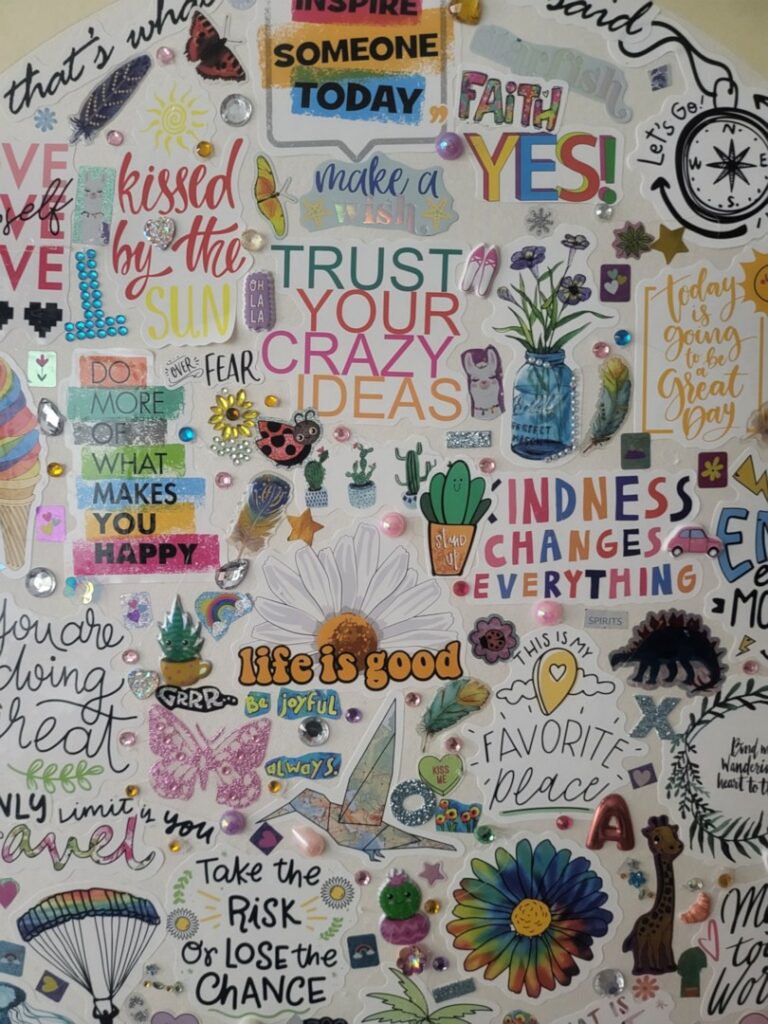 that's what
said
INSPIRE
SOMEONE
TODAY
"
FAITH
YES!
Let's Go!
N
W E
S
make a
wish.
kissed
by the
SUN
OH
LA
LA
TRUST
YOUR
CRAZY
IDEAS
today
is
going
to be
a
Great
Day
OVER FEAR
DO
MORE
OF
WHAT
MAKES
YOU
HAPPY
PERFECT
MASON
stand
up
KINDNESS
CHANGES
EVERYTHING
life is good
SPIRITS
you are
doing
great
GRRR..
Be joyful
always.
THIS IS MY
FAVORITE
place
KISS
ME
X
O
A
ONLY LIMIT is YOU
travel
Take the
RiSK
or LOSE the
CHANCE